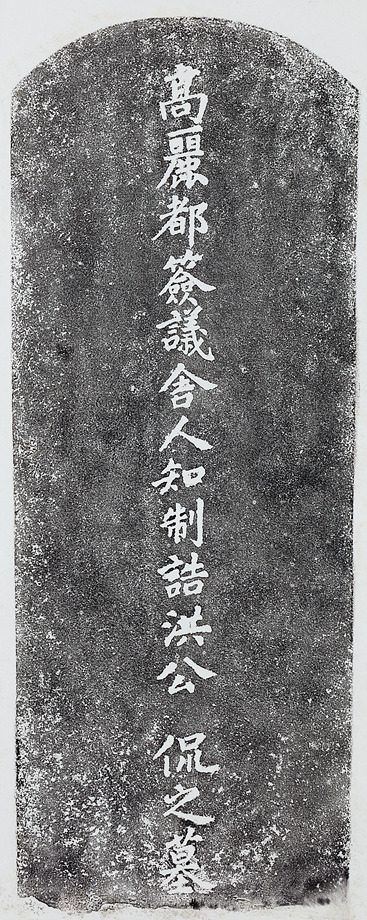 高麗都簽議舍人知制誥洪公 侃之墓